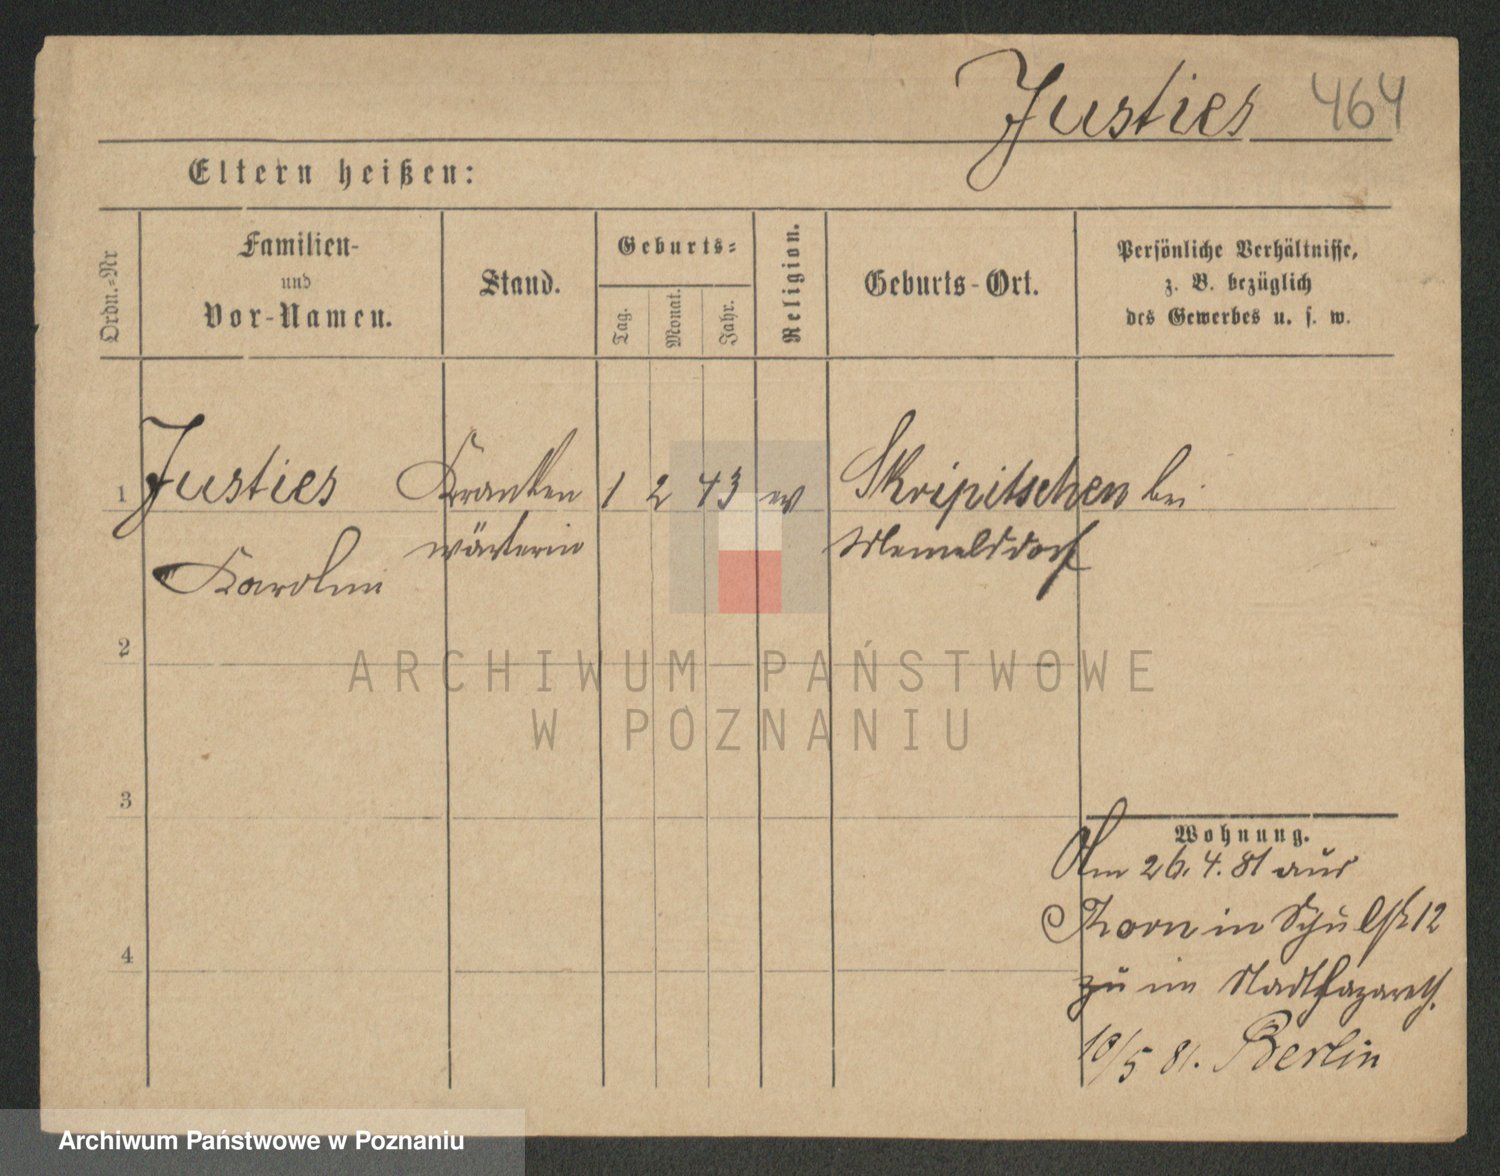 Justies 464
Eltern heißen:
Ordn.-Nr
Familien-
und
Vor-Namen.
Stand.
Geburts-
Tag.
Monat.
Jahr.
Religion.
Geburts-Ort.
Persönliche Verhältnisse,
z. B. bezüglich
des Gewerbes u. s. w.
1 Justies Kranken 1 2 43 ev Skripitschen bei
Karolin wärterin Memelddorf
2
ARCHIWUM PAŃSTWOWE
W POZNANIU
3
Wohnung.
Am 26. 4. 81 aus
Thorn in Schulstr 12
4
zu im Stadtlazareth.
10/5 81. Berlin
Archiwum Państwowe w Poznaniu